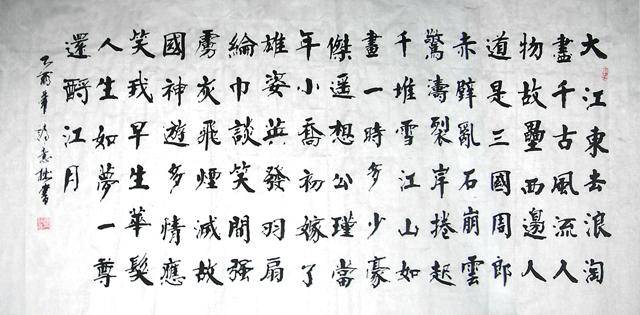 大江東去浪淘
盡千古風流人
物故壘西邊人
道是三國周郎
赤壁亂石崩雲
驚濤裂岸捲起
千堆雪江山如
畫一時多少豪
傑遥想公瑾當
年小喬初嫁了
雄姿英發羽扇
綸巾談笑間强
虜灰飛煙滅故
國神遊多情應
笑我早生華髮
人生如夢一尊
還酹江月
書